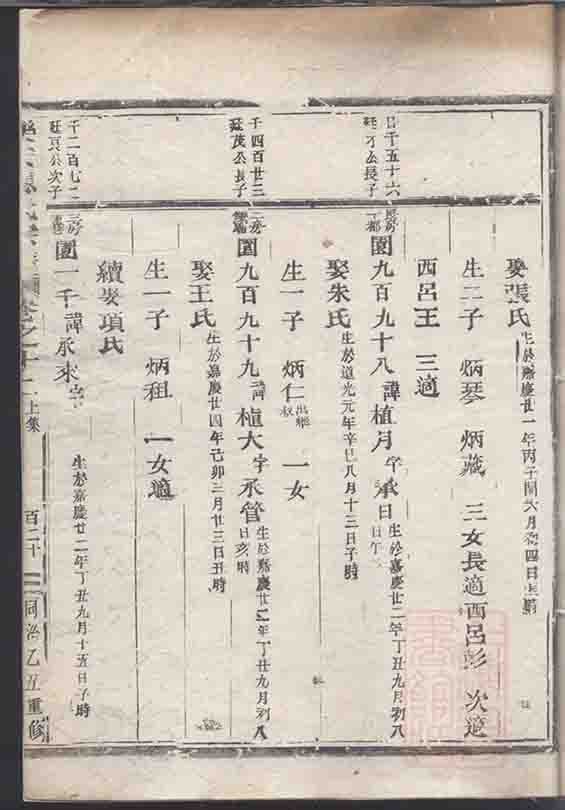 娶張氏 生於嘉慶廿一年丙子閏六月初四日
生二子 炳琴 炳藏 三女長適西呂彭 次適
西呂王 三適
千五十六
長子
園九百九十八諱植月字承日 生於嘉慶廿二年丁丑九月初八日午
娶朱氏 生於道光元年辛巳八月十三日子時
生一子 炳仁 出繼 叔 一女
千四百廿三
廷茂公長子
園九百九十九諱植大字承管 生於嘉慶廿二年丁丑九月初八日亥時
娶王氏 生於嘉慶廿四年己卯三月廿三日丑時
生一子 炳祖 一女適
續娶項氏
千二百七二
公次子
園一千諱承來字 生於嘉慶廿二年丁丑九月十五日子時
卷之十二上集 百二十 同治乙丑重修